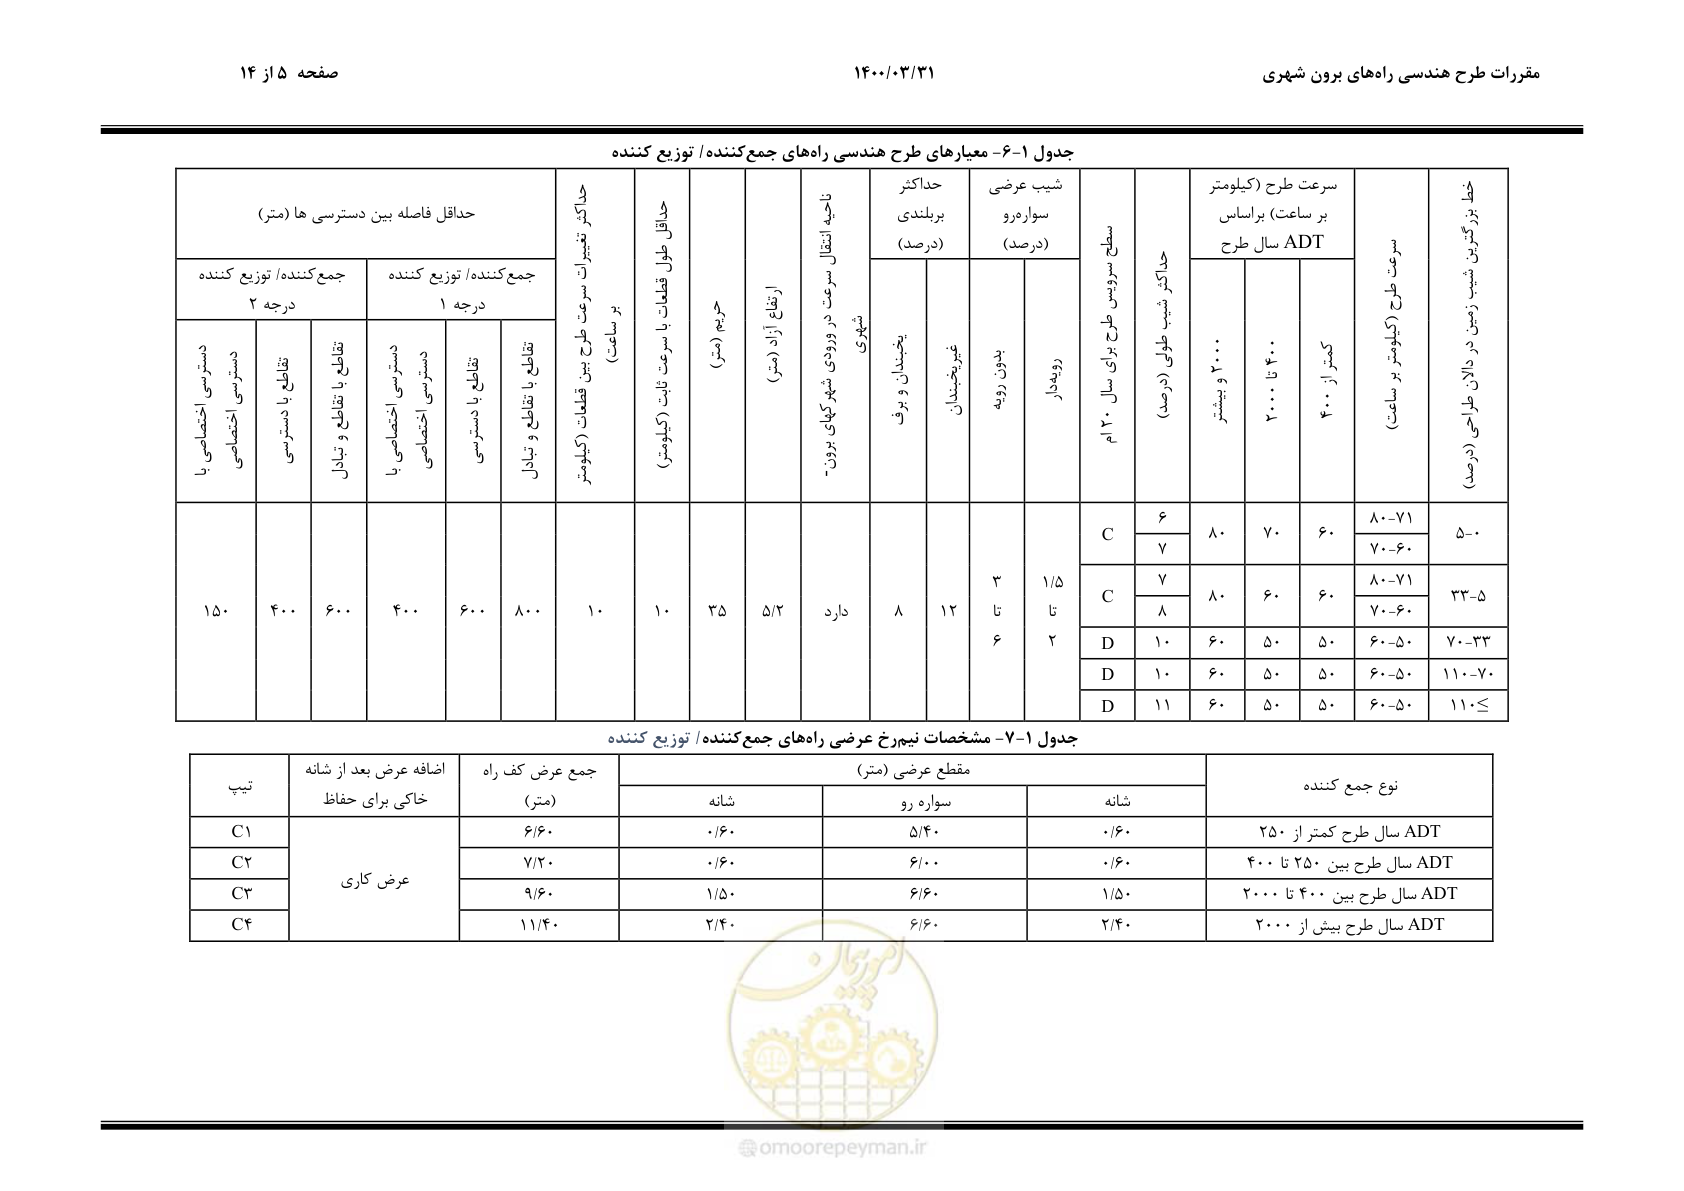 مقررات طرح هندسی راه‌های برون شهری
۱۴۰۰/۰۳/۳۱
صفحه ۵ از ۱۴
جدول ۱-۶- معیارهای طرح هندسی راه‌های جمع‌کننده/ توزیع کننده
خط بزرگترین شیب زمین در دالان طراحی (درصد)
سرعت طرح (کیلومتر بر ساعت)
سرعت طرح (کیلومتر
بر ساعت) براساس
ADT سال طرح
کمتر از ۴۰۰
۴۰۰ تا ۲۰۰۰
۲۰۰۰ و بیشتر
حداکثر شیب طولی (درصد)
سطح سرویس طرح برای سال ۲۰ ام
شیب عرضی
سواره‌رو
(درصد)
رویه‌دار
بدون رویه
حداکثر
بربلندی
(درصد)
غیریخبندان
یخبندان و برف
ناحیه انتقال سرعت در ورودی شهرکهای برون-
شهری
ارتفاع آزاد (متر)
حریم (متر)
حداقل طول قطعات با سرعت ثابت (کیلومتر)
حداکثر تغییرات سرعت طرح بین قطعات (کیلومتر
بر ساعت)
حداقل فاصله بین دسترسی ها (متر)
جمع‌کننده/ توزیع کننده
درجه ۱
تقاطع با تقاطع و تبادل
تقاطع با دسترسی
دسترسی اختصاصی با
دسترسی اختصاصی
جمع‌کننده/ توزیع کننده
درجه ۲
تقاطع با تقاطع و تبادل
تقاطع با دسترسی
دسترسی اختصاصی با
دسترسی اختصاصی
۵-۰
۸۰-۷۱
۷۰-۶۰
۶۰ ۷۰ ۸۰
۶
۷
C
۳۳-۵
۸۰-۷۱
۷۰-۶۰
۶۰ ۶۰ ۸۰
۷
۸
C
۷۰-۳۳ ۶۰-۵۰ ۵۰ ۵۰ ۶۰ ۱۰ D
۱۱۰-۷۰ ۶۰-۵۰ ۵۰ ۵۰ ۶۰ ۱۰ D
۱۱۰≤ ۶۰-۵۰ ۵۰ ۵۰ ۶۰ ۱۱ D
۱/۵
تا
۲
۳
تا
۶
۱۲ ۸ دارد ۵/۲ ۳۵ ۱۰ ۱۰ ۸۰۰ ۶۰۰ ۴۰۰ ۶۰۰ ۴۰۰ ۱۵۰
جدول ۱-۷- مشخصات نیم‌رخ عرضی راه‌های جمع‌کننده/ توزیع کننده
نوع جمع کننده
مقطع عرضی (متر)
شانه سواره رو شانه
جمع عرض کف راه
(متر)
اضافه عرض بعد از شانه
خاکی برای حفاظ
تیپ
ADT سال طرح کمتر از ۲۵۰ ۰/۶۰ ۵/۴۰ ۰/۶۰ ۶/۶۰ C۱
ADT سال طرح بین ۲۵۰ تا ۴۰۰ ۰/۶۰ ۶/۰۰ ۰/۶۰ ۷/۲۰ C۲
عرض کاری
ADT سال طرح بین ۴۰۰ تا ۲۰۰۰ ۱/۵۰ ۶/۶۰ ۱/۵۰ ۹/۶۰ C۳
ADT سال طرح بیش از ۲۰۰۰ ۲/۴۰ ۶/۶۰ ۲/۴۰ ۱۱/۴۰ C۴
امورپیمان
@omoorepeyman.ir